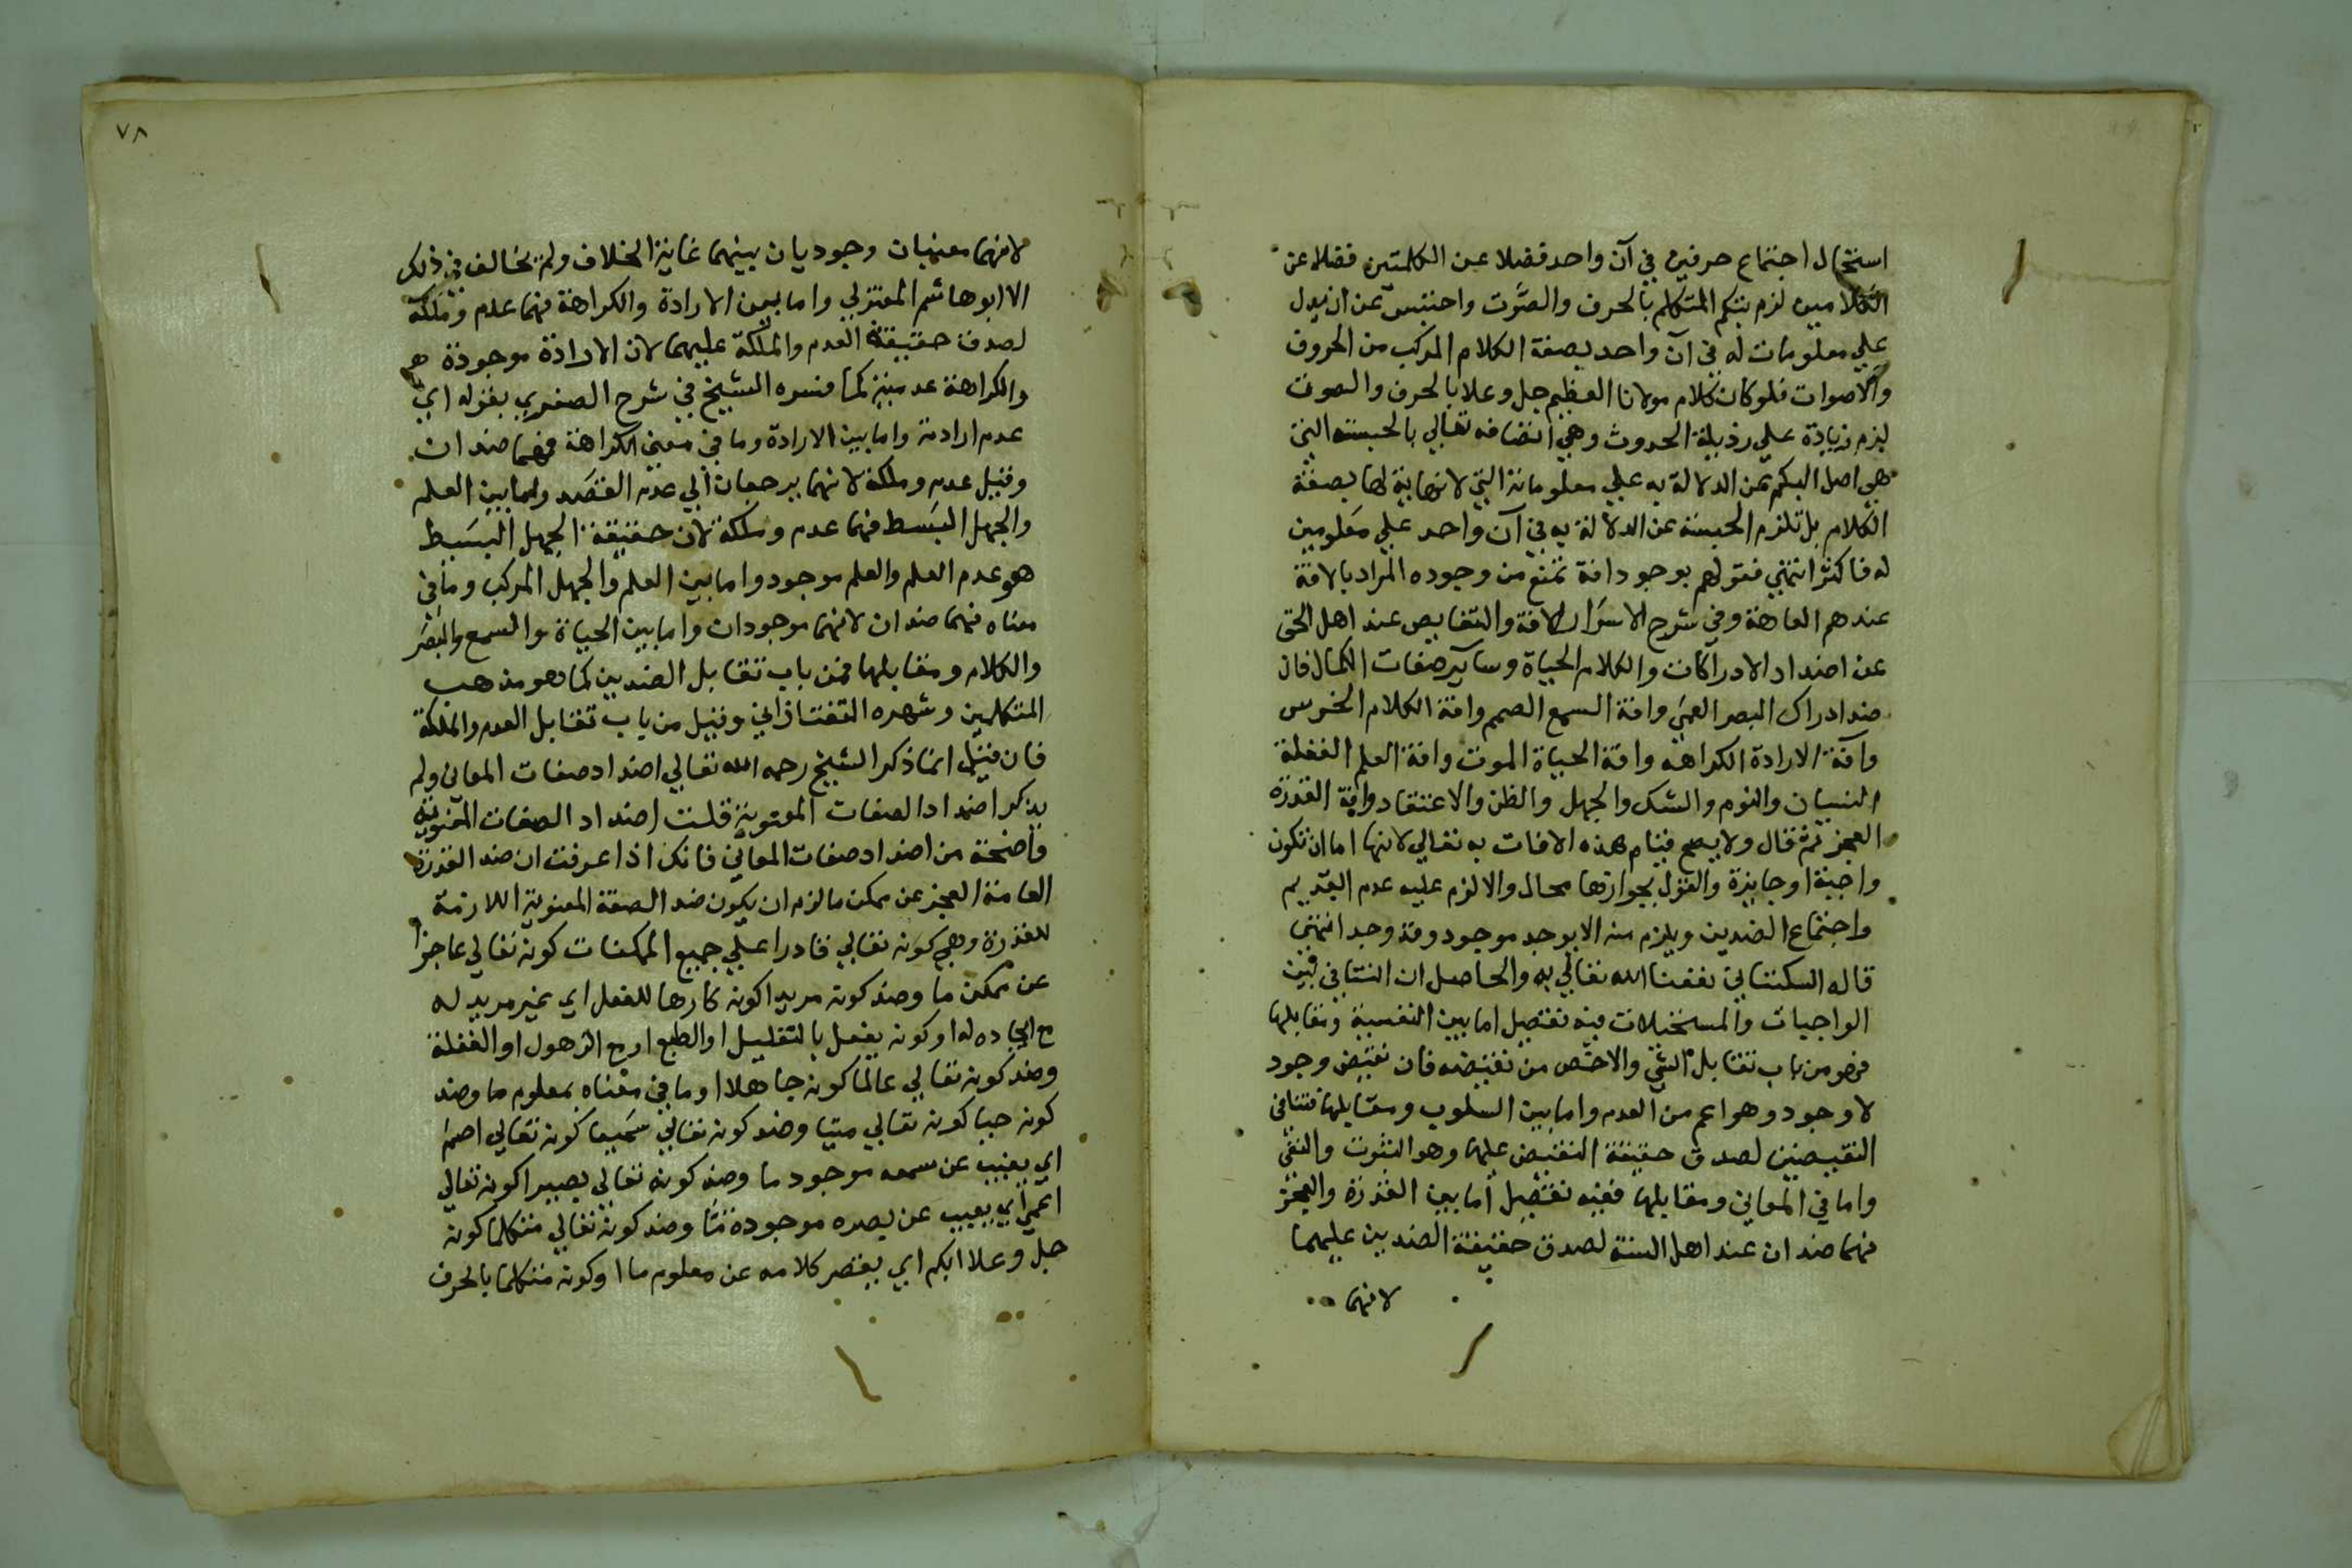 استحال اجتماع حرفين في آن واحد فضلا عن الكلمتين فضلا عن
الكلامين لزم بكم المتكلم بالحرف والصوت واحتبس عن ان يدل
علي معلومات له في آن واحد بصفة الكلام المركب من الحروف
والاصوات فلو كان كلام مولانا العظيم جل وعلا بالحرف والصوت
لزم زيادة علي رذيلة الحدوث وهي اتصافه تعالي بالحبسة التي
هي اصل البكم عن الدلالة به علي معلوماته التي لا نهاية لها بصفة
الكلام بل تلزم الحبسة عن الدلالة به في آن واحد علي معلومين
له فاكثر انتهي فقولهم بوجود افة تمنع من وجوده المراد بالافة
عندهم العاهة وفي شرح الاسرار الافة والنقايص عند اهل الحق
عن اضداد الادراكات والكلام الحياة وساير صفات الكمال فان
ضد ادراك البصر العمي وافة السمع الصمم وافة الكلام الخرس
وآفة الارادة الكراهه وافة الحياة الموت وافة العلم الغفلة
النسيان والنوم والشك والجهل والظن والاعتقاد وافة القدرة
العجز ثم قال ولا يصح قيام هذه الافات به تعالي لانها اما ان تكون
واجبة او جايزة والقول بجوازها محال والا لزم عليه عدم القديم
واجتماع الضدين ويلزم منه الا يوجد موجود وقد وجد انتهي
قاله السكتاني نفعنا الله تعالي به والحاصل ان التنافي بين
الواجبات والمستحيلات فيه تفصيل اما بين النفسية ومقابلها
فهو من باب تقابل الشي والاخص من نقيضه فان نقيض وجود
لا وجود وهو اعم من العدم واما بين السلوب ومقابلها فتنافي
النقيضين لصدق حقيقة النقيض عليها وهو الثبوت والنفي
واما في المعاني ومقابلها ففيه تفصيل اما بين القدرة والعجز
فهما ضدان عند اهل السنة لصدق حقيقة الضدين عليهما
لانهما
٧٨
لانهما معنيان وجوديان بينهما غاية الخلاف ولم يخالف في ذلك
الا ابو هاشم المعتزلي واما بين الارادة والكراهة فهما عدم وملكة
لصدق حقيقة العدم والملكة عليهما لان الارادة موجودة
والكراهة عدمية كما فسره الشيخ في شرح الصغري بقوله اي
عدم ارادته واما بين الارادة وما في معني الكراهة فهما ضدان
وقيل عدم وملكة لانهما يرجعان الي عدم القصد واما بين العلم
والجهل البسيط فهما عدم وملكة لان حقيقة الجهل البسيط
هو عدم العلم والعلم موجود واما بين العلم والجهل المركب وما في
معناه فهما ضدان لانهما موجودان واما بين الحياة والسمع والبصر
والكلام ومقابلها فمن باب تقابل الضدين كما هو مذهب
المتكلمين وشهره التفتازاني وقيل من باب تقابل العدم والملكة
فان قيل انما ذكر الشيخ رحمه الله تعالي اضداد صفات المعاني ولم
يذكر اضداد الصفات المعنوية قلت اضداد الصفات المعنوية
واضحة من اضداد صفات المعاني فانك اذا عرفت ان ضد القدرة
العامة العجز عن ممكن ما لزم ان يكون ضد الصفة المعنوية اللازمة
للقدرة وهي كونه تعالي قادرا علي جميع الممكنات كونه تعالي عاجزا
عن ممكن ما وضد كونه مريدا كونه كارها للفعل اي غير مريد له
مع ايجاده له او كونه يفعل بالتعليل او الطبع او مع الذهول او الغفلة
وضد كونه تعالي عالما كونه جاهلا او ما في معناه بمعلوم ما وضد
كونه حيا كونه تعالي ميتا وضد كونه تعالي سميعا كونه تعالي اصم
اي يغيب عن سمعه موجود ما وضد كونه تعالي بصيرا كونه تعالي
اعمي اي يغيب عن بصره موجودة ما وضد كونه تعالي متكلما كونه
جل وعلا ابكم اي يقصر كلامه عن معلوم ما او كونه متكلما بالحرف